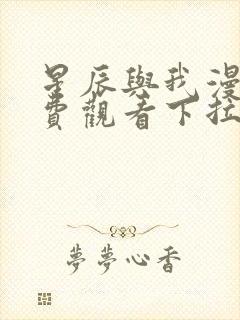 星辰與我漫
費觀看下拉
夢夢心香